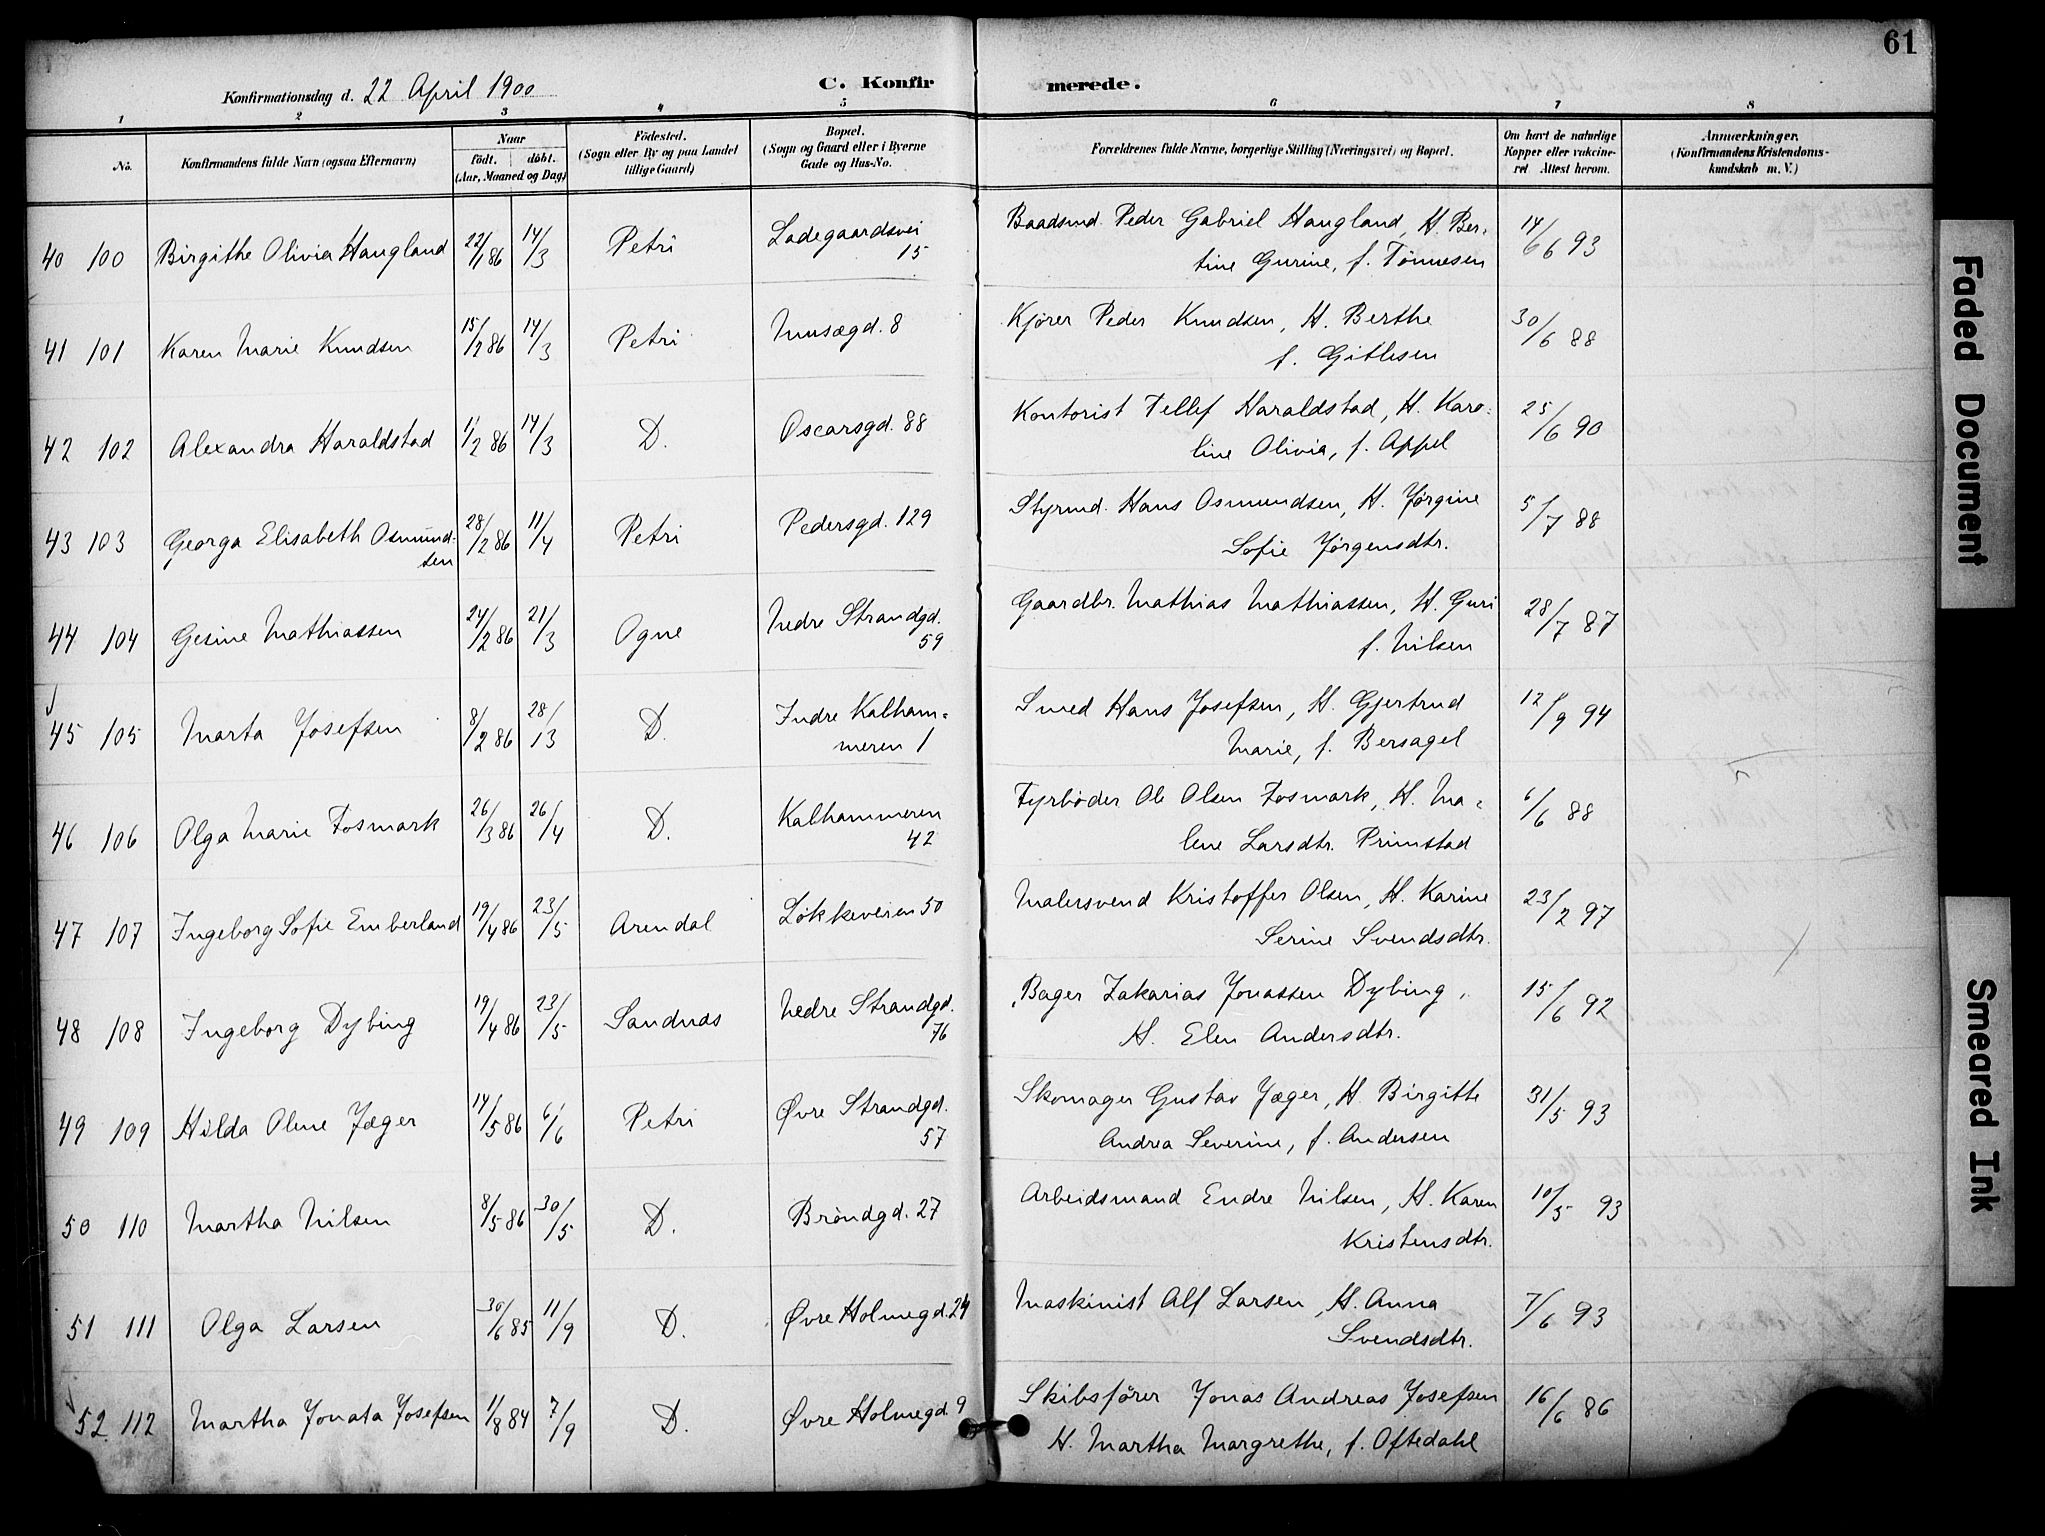 61
Konfirmationsdag d. 22 April 1900
C. Konfirmerede.
1 2 3 4 5 6 7 8
No.
Konfirmandens fulde Navn (ogsaa Efternavn)
Naar
födt. döbt.
(Aar, Maaned og Dag)
Födested.
(Sogn eller By og paa Landet
tillige Gaard)
Bopæl.
(Sogn og Gaard eller i Byerne
Gade og Hus-No.
Forældrenes fulde Navne, borgerlige Stilling (Næringsvei) og Bopæl.
Om havt de naturlige
Kopper eller vakcine-
ret Attest herom.
Anmærkninger.
(Konfirmandens Kristendoms-
kundskab m. V.)
40 100 Birgithe Olivia Haugland 22/1 86 14/3 Petri Ladegaardsvei 15 Baadsmd. Peder Gabriel Haugland, H. Ber- 14/6 93
tine Gurine, f. Tønnesen
41 101 Karen Marie Knudsen 15/2 86 14/3 Petri Musægd. 8 Kjører Peder Knudsen, H. Berthe 30/6 88
f. Gitlesen
42 102 Alexandra Haraldstad 11/2 86 14/3 D. Oscarsgd. 88 Kontorist Tellef Haraldstad, H. Karo- 25/6 90
line Olivia, f. Appel
43 103 Georga Elisabeth Osmund- 28/2 86 11/4 Petri Pedersgd. 129 Styrmd. Hans Osmundsen, H. Jørgine 5/7 88
sen Sofie Jørgensdtr.
44 104 Gesine Mathiassen 24/2 86 21/3 Ogne Nedre Strandgd. 59 Gaardbr. Mathias Mathiassen, H. Guri 28/7 87
f. Nilsen
45 105 Marta Josefsen 8/2 86 28/3 D. Indre Kalham- Smed Hans Josefsen, H. Gjertrud 12/9 94
meren 1 Marie, f. Bersagel
46 106 Olga Marie Fosmark 26/3 86 26/4 D. Kalhammeren 42 Fyrbøder Ole Olsen Fosmark, H. Ma- 6/6 88
lene Larsdtr. Primstad
47 107 Ingeborg Sofie Emberland 19/4 86 23/5 Arendal Løkkeveien 50 Malersvend Kristoffer Olsen, H. Karine 23/2 97
Serine Svendsdtr.
48 108 Ingeborg Dybing 19/4 86 23/5 Sandnæs Nedre Strandgd. 76 Bager Zakarias Jonassen Dybing, 15/6 92
H. Elen Andersdtr.
49 109 Hilda Oline Jæger 14/5 86 6/6 Petri Øvre Strandgd. 57 Skomager Gustav Jæger, H. Birgitte 31/5 93
Andrea Severine, f. Andersen
50 110 Martha Nilsen 8/5 86 30/5 D. Brøndgd. 27 Arbeidsmand Endre Nilsen, H. Karen 10/5 93
Kristensdtr.
51 111 Olga Larsen 30/6 85 11/9 D. Øvre Holmegd. 24 Maskinist Alf Larsen, H. Anna 7/6 93
Svendsdtr.
52 112 Martha Jonata Josefsen 1/8 84 7/9 D. Øvre Holmegd. 9 Skibsfører Jonas Andreas Josefsen 16/6 86
H. Martha Margrethe, f. Oftedahl
Faded Document
Smeared Ink